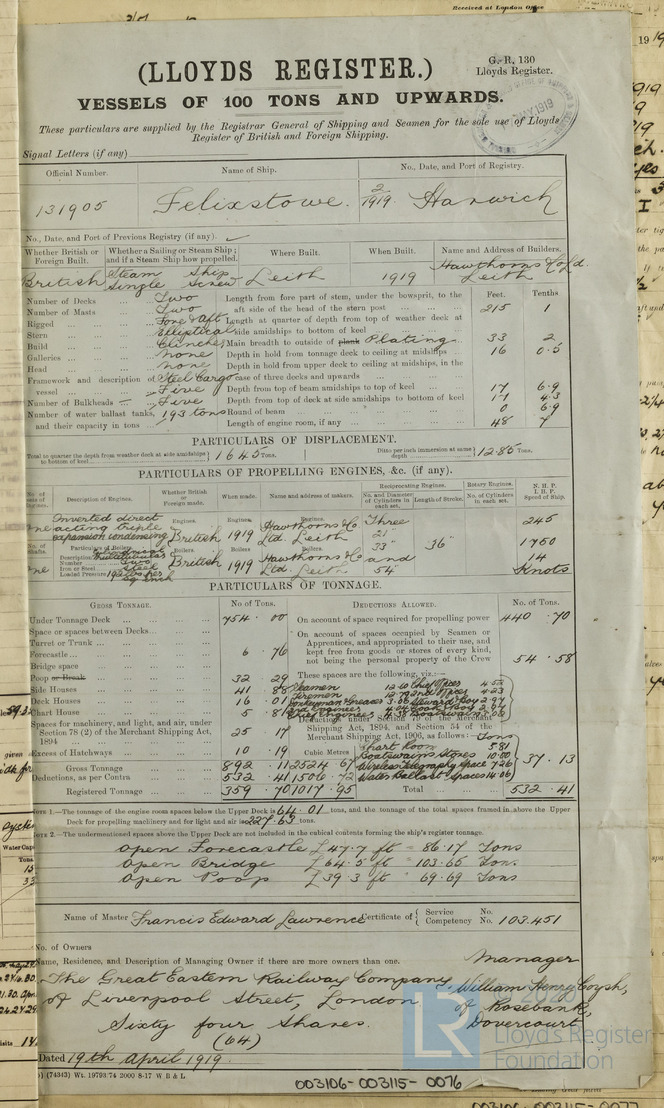 Received at London Office
(LLOYDS REGISTER.)
G.-R. 130
Lloyds Register.
VESSELS OF 100 TONS AND UPWARDS.
These particulars are supplied by the Registrar General of Shipping and Seamen for the sole use of Lloyds
Register of British and Foreign Shipping.
Signal Letters (if any)
Official Number. Name of Ship. No., Date, and Port of Registry.
131905 Felixstowe. 2/1919. Harwich
No., Date, and Port of Previous Registry (if any).
Whether British or Foreign Built. Whether a Sailing or Steam Ship; and if a Steam Ship how propelled. Where Built. When Built. Name and Address of Builders.
British Steam Ship Single Screw Leith 1919 Hawthorns & Co Ld. Leith
Feet. Tenths
Number of Decks Two Length from fore part of stem, under the bowsprit, to the
Number of Masts Two aft side of the head of the stern post 215 1
Rigged Fore & Aft Length at quarter of depth from top of weather deck at
Stern Elliptical side amidships to bottom of keel
Build Clincher Main breadth to outside of plank Plating 33 2
Galleries none Depth in hold from tonnage deck to ceiling at midships 16 0.5
Head none Depth in hold from upper deck to ceiling at midships, in the
Framework and description of vessel Steel Cargo case of three decks and upwards
Number of Bulkheads Five Depth from top of beam amidships to top of keel 17 6.9
Number of water ballast tanks, Five Depth from top of deck at side amidships to bottom of keel 17 4.3
and their capacity in tons 193 tons Round of beam 0 6.9
Length of engine room, if any 48 7
PARTICULARS OF DISPLACEMENT.
Total to quarter the depth from weather deck at side amidships to bottom of keel 1645 Tons. Ditto per inch immersion at same depth 12.85 Tons.
PARTICULARS OF PROPELLING ENGINES, &c. (if any).
No. of sets of Engines. Description of Engines. Whether British or Foreign made. When made. Name and address of makers. Reciprocating Engines. No. and Diameter of Cylinders in each set. Length of Stroke. Rotary Engines. No. of Cylinders in each set. N. H. P. I. H. P. Speed of Ship.
One Inverted direct acting triple expansion condensing Engines. British Engines. 1919 Engines. Hawthorns & Co Ltd. Leith Three 21" 33" and 54" 36" 245
1750
14
Knots
No. of Shafts. Particulars of Boilers.
One Description
Number Two
Iron or Steel Steel
Loaded Pressure
Boilers British Boilers 1919 Boilers Hawthorns & Co Ltd. Leith
PARTICULARS OF TONNAGE.
GROSS TONNAGE. No of Tons. DEDUCTIONS ALLOWED. No. of Tons.
Under Tonnage Deck 754.00 On account of space required for propelling power 440.70
Space or spaces between Decks
Turret or Trunk
Forecastle 6.76
Bridge space
On account of spaces occupied by Seamen or
Apprentices, and appropriated to their use, and
kept free from goods or stores of every kind,
not being the personal property of the Crew 54.58
Poop or Break 32 29
Side Houses 41 88
Deck Houses 16 01
Chart House 5 81
These spaces are the following, viz.:—
Deductions under Section 79 of the Merchant
Shipping Act, 1894, and Section 54 of the
Merchant Shipping Act, 1906, as follows:— Tons
Spaces for machinery, and light, and air, under
Section 78 (2) of the Merchant Shipping Act,
1894 25 17
Excess of Hatchways 10 19
Chart Room 5.81
Boatswains Stores 10.00
Wireless Telegraphy Space 7.26
Water Ballast Spaces 14.06
37.13
Cubic Metres
Gross Tonnage 892 11 2524 67
Deductions, as per Contra 532 41 1506 72
Registered Tonnage 359 70 1017 95 Total 532.41
NOTE 1.—The tonnage of the engine room spaces below the Upper Deck is 64.01 tons, and the tonnage of the total spaces framed in above the Upper
Deck for propelling machinery and for light and air is 227.63 tons.
NOTE 2.—The undermentioned spaces above the Upper Deck are not included in the cubical contents forming the ship's register tonnage.
Open Forecastle 47.7 ft = 86.17 Tons
Open Bridge 64.5 ft = 103.65 Tons.
Open Poop 39.3 ft " 69.69 Tons
Name of Master Francis Edward Lawrence Certificate of { Service No. Competency No. 103.451
No. of Owners
Name, Residence, and Description of Managing Owner if there are more owners than one.
Manager
The Great Eastern Railway Company William Henry Coysh,
of Liverpool Street, London of Rosebank,
Sixty four Shares. Dovercourt
(64)
Dated 19th April 1919.
(74343) Wt. 19793/74 2000 8-17 W B & L
© 2020
LR Lloyd's Register
Foundation
003106-003115-0076